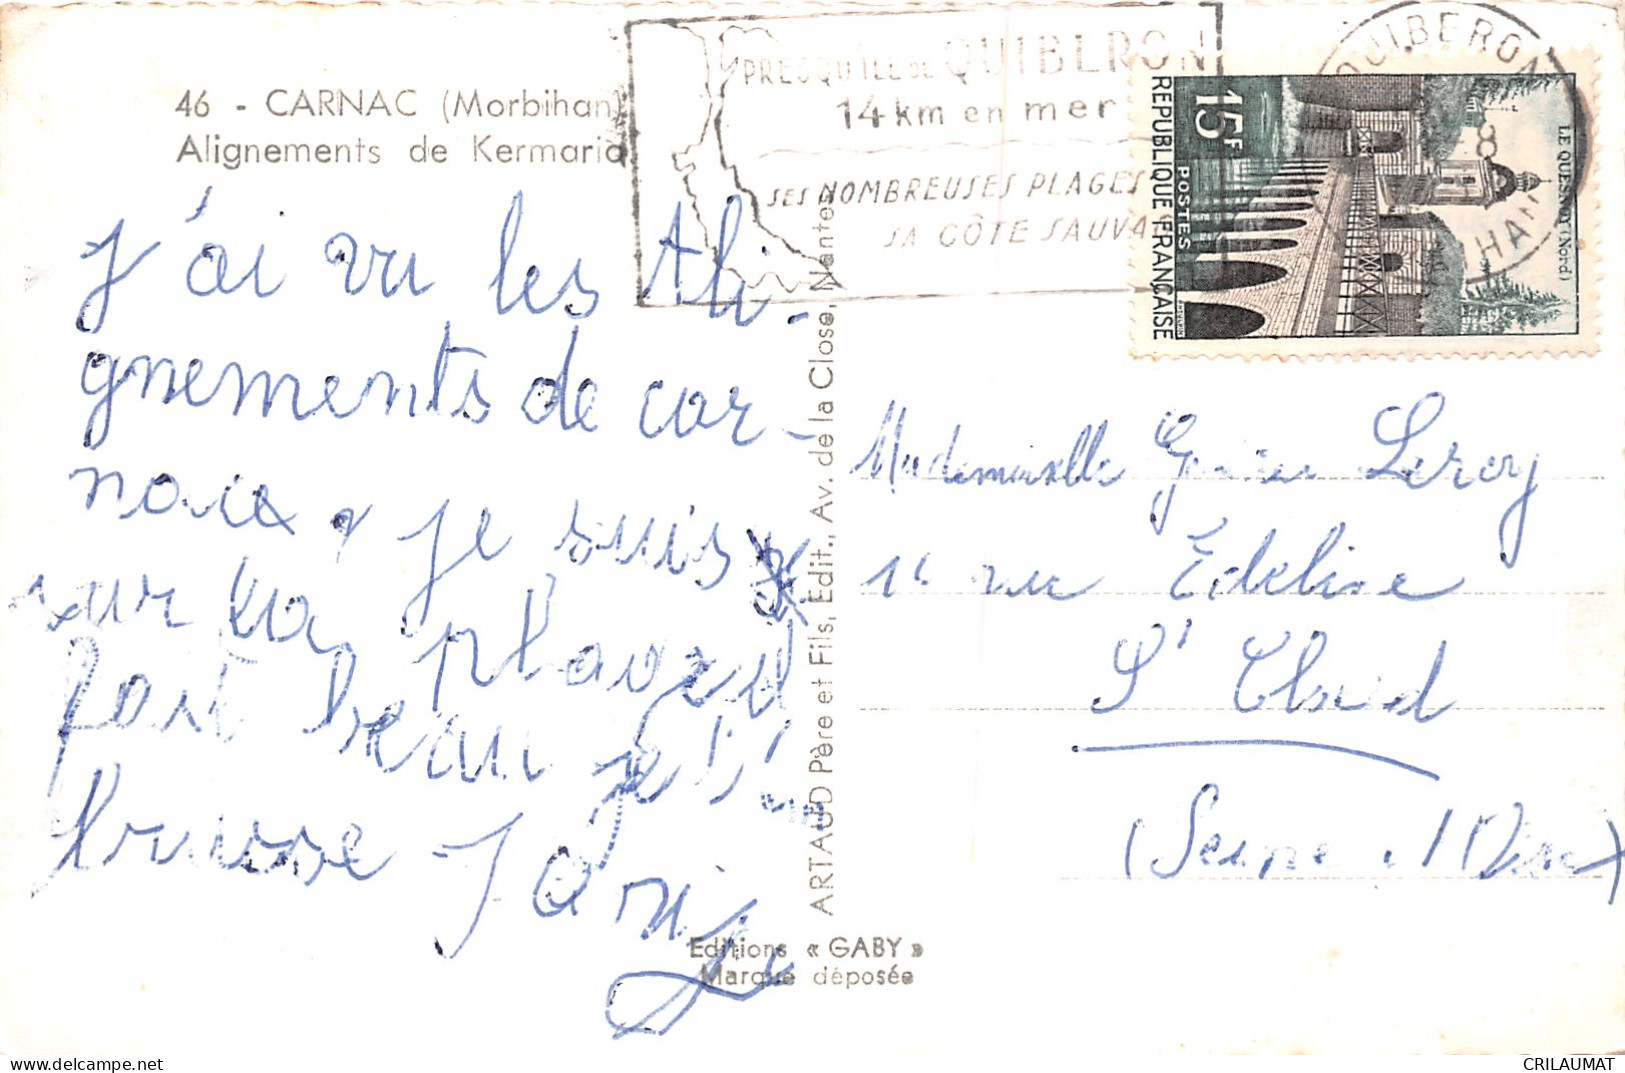 46 - CARNAC (Morbihan)
Alignements de Kermario
PRESQU'ÎLE DE QUIBERON
14 km en mer
SES NOMBREUSES PLAGES
SA CÔTE SAUVA
QUIBERON
15F
POSTES
REPUBLIQUE FRANÇAISE
LE QUESNOY (Nord)
J'ai vu les Ali-
gnements de car-
nac, je suis
sur la plage il
fait beau je t'em
brasse
ARTAUD Père et Fils, Edit., Av. de la Close, Nantes
Mademoiselle Leroy
rue Edelise
St Cloud
(Seine et Oise)
Editions « GABY »
Marque déposée
delcampe.net
CRILAUMAT